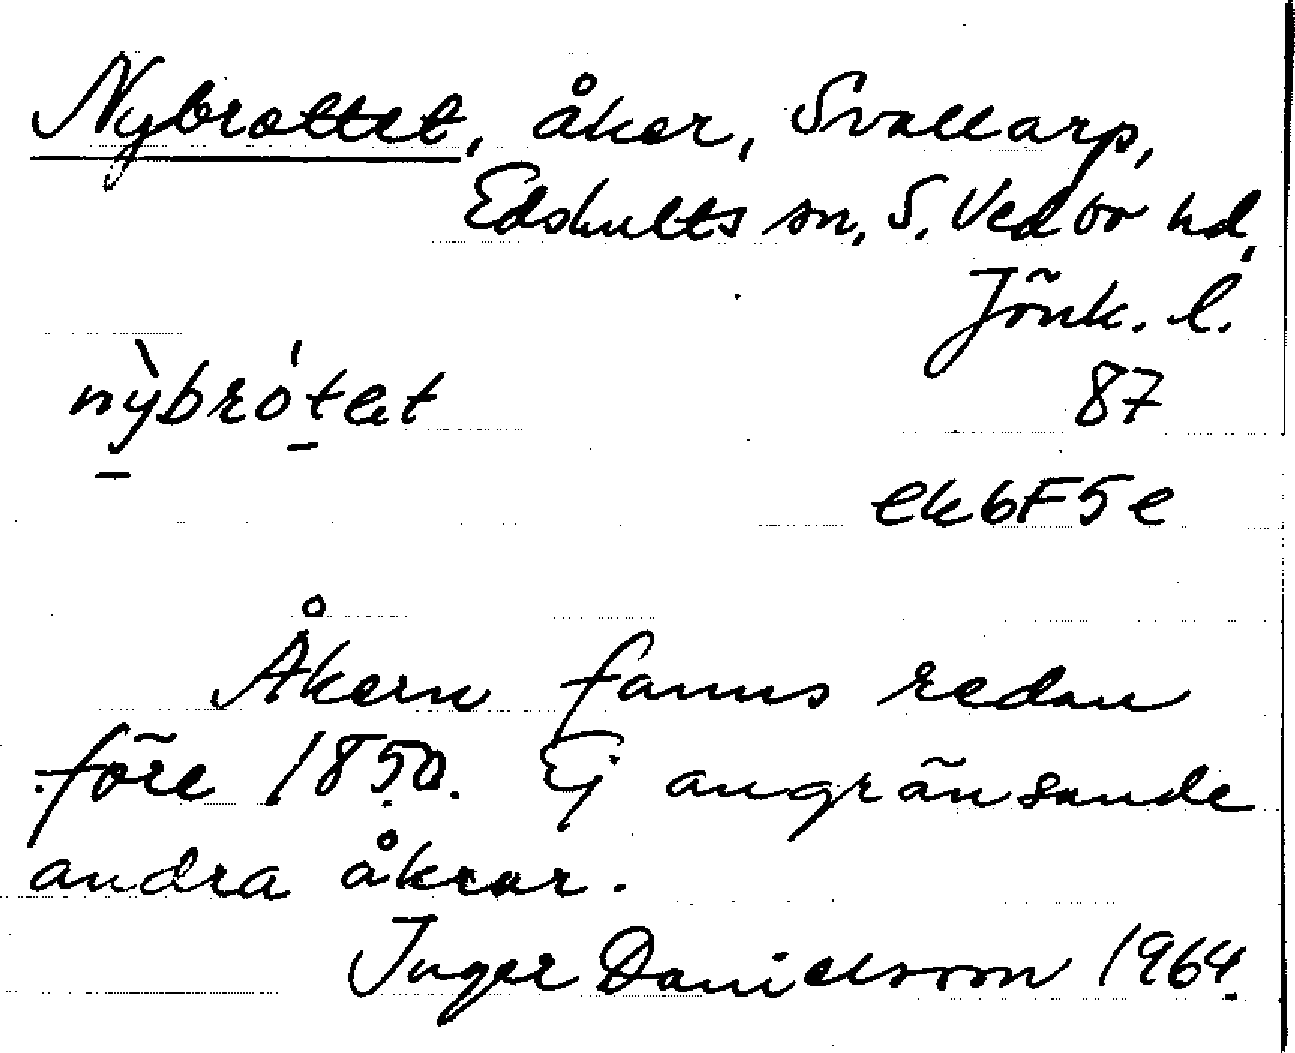 Nybrottet, åker, Svallarp,
Edshults sn, S. Vedbo hd,
Jönk. l.
nỳbrótet
87
ek6F5e
Åkern fanns redan
före 1850. Ej angränsande
andra åkrar.
Inger Danielsson 1964.